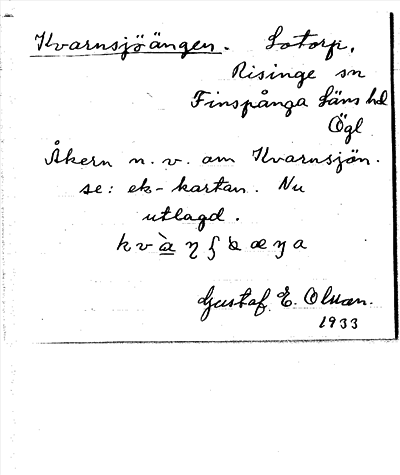 Kvarnsjöängen. Lotorp,
Risinge sn
Finspånga läns hd
Ögl
Åkern n. v. om Kvarnsjön.
se: ek-kartan. Nu
utlagd.
Gustaf E. Olsson.
1933